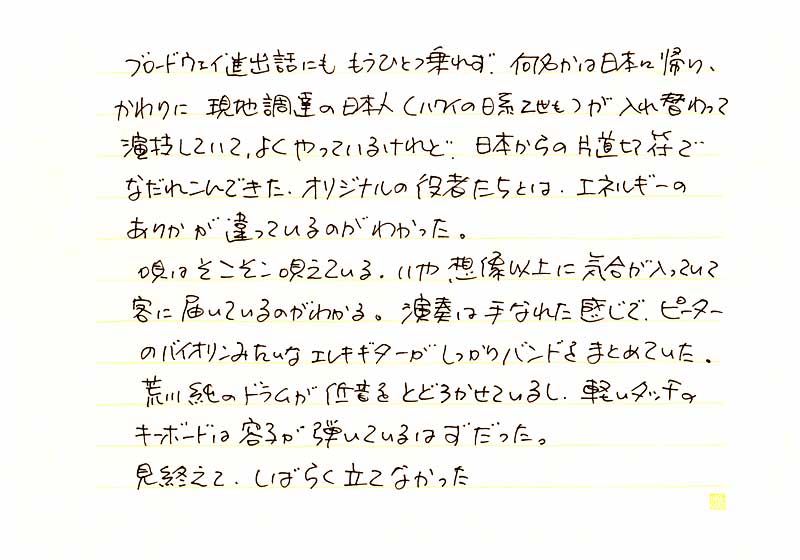 ブロードウェイ進出話にも もうひとつ乗れず、何名かは日本に帰り、
かわりに 現地調達の日本人（ハワイの日系2世も）が 入れ替わって
演技していて、よくやっているけれど、日本からの片道切符で
なだれこんできた、オリジナルの役者たちとは、エネルギーの
ありかが違っているのがわかった。
唄はそこそこ唄えている、いや想像以上に気合が入っていて
客に届いているのがわかる。演奏は手なれた感じで、ピーター
のバイオリンみたいなエレキギターがしっかりバンドをまとめていた。
荒川純のドラムが低音をとどろかせているし、軽いタッチの
キーボードは容子が弾いているはずだった。
見終えて、しばらく立てなかった